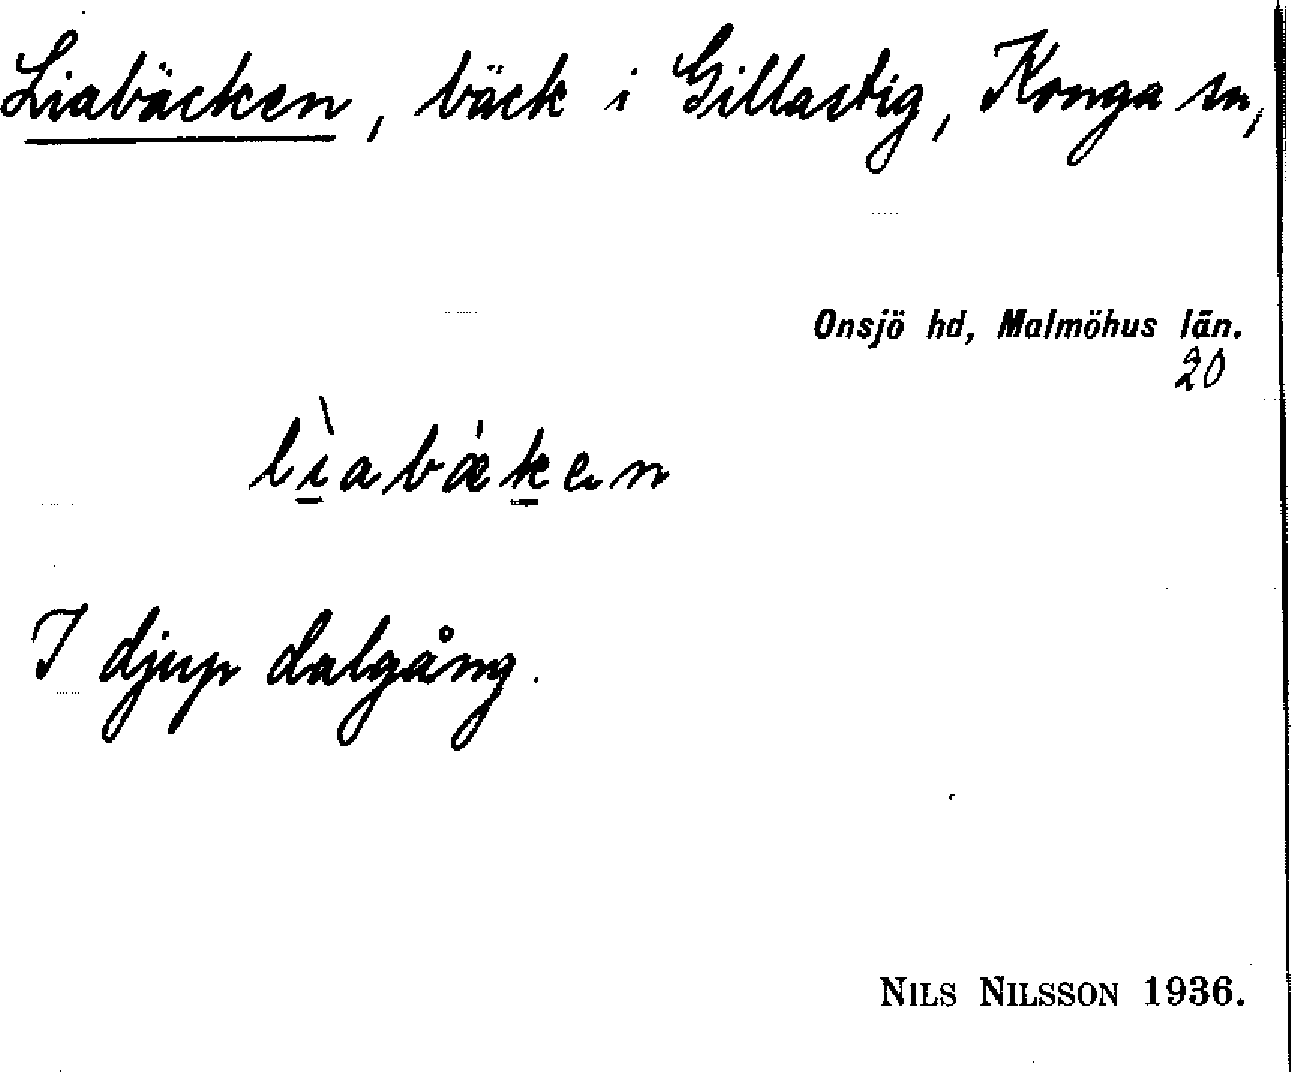 Liabäcken, bäck i Gillastig, Konga sn,
Onsjö hd, Malmöhus län.
20
lìabákən
I djup dalgång.
NILS NILSSON 1936.